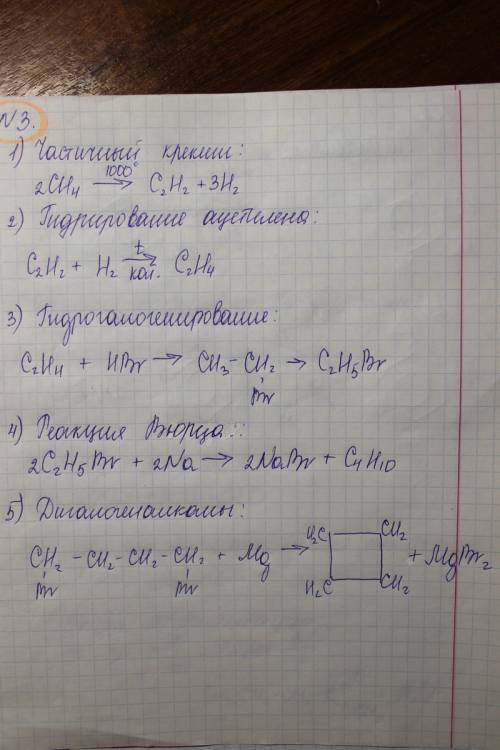 N3.
1) Частичный крекинг:
2CH4 1000° → C2H2 + 3H2
2) Гидрирование ацетилена:
C2H2 + H2 t → кат. C2H4
3) Гидрогалогенирование:
C2H4 + HBr → CH3 - CH2 → C2H5Br
Br
4) Реакция Вюрца:
2C2H5Br + 2Na → 2NaBr + C4H10
5) Дигалогеналканы:
H2C CH2
CH2 - CH2 - CH2 - CH2 + Mg → + MgBr2
Br Br H2C CH2